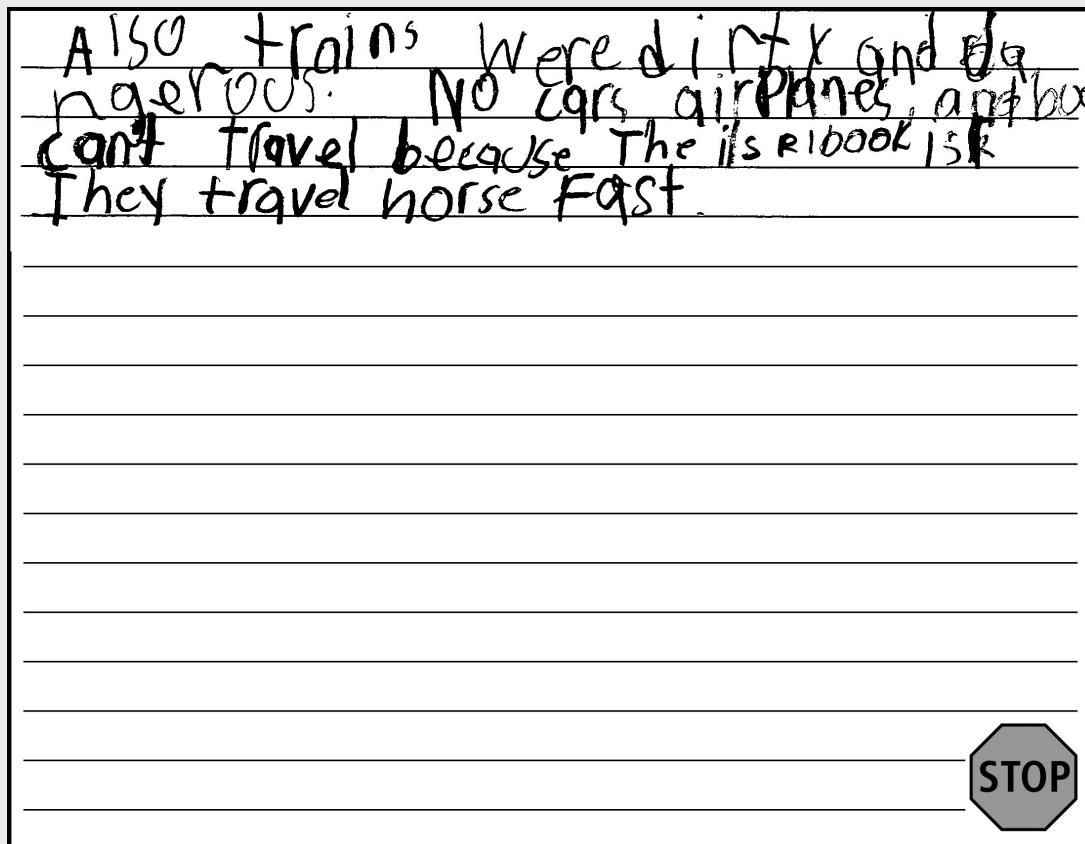 Also trains were dirty and da
ngerous. No cars, airplanes, and bu
can't travel because The
They travel horse Fast.
STOP